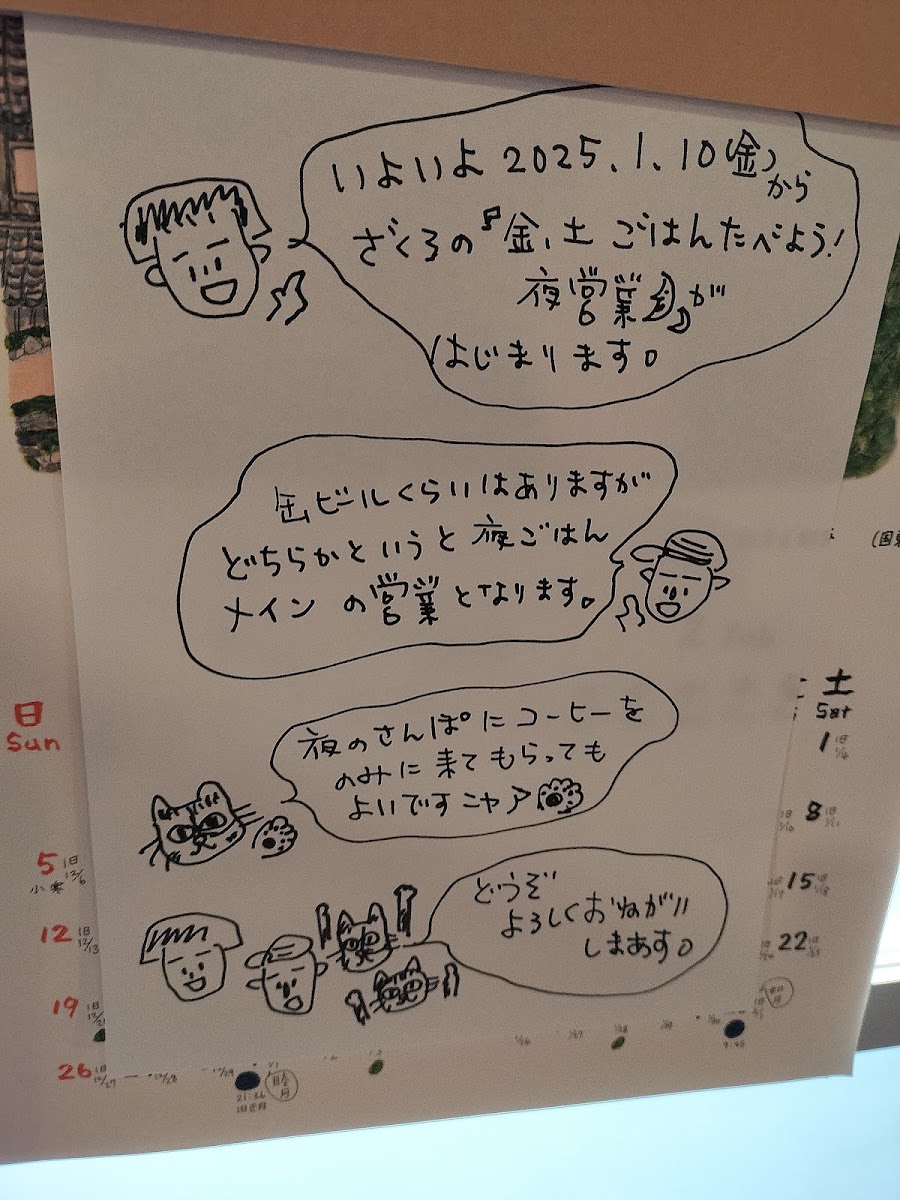 いよいよ 2025.1.10(金)から
ざくろの『金、土 ごはんたべよう!
夜営業』が
はじまります。
缶ビールくらいはありますが
どちらかというと 夜ごはん
メインの営業となります。
夜のさんぽにコーヒーを
のみに来てもらっても
よいですニャア
どうぞ
よろしくおねがい
しまあす。
日
Sun
土
Sat
1
8
5
小寒
15
12
22
19
26
21:36
旧正月
睦月